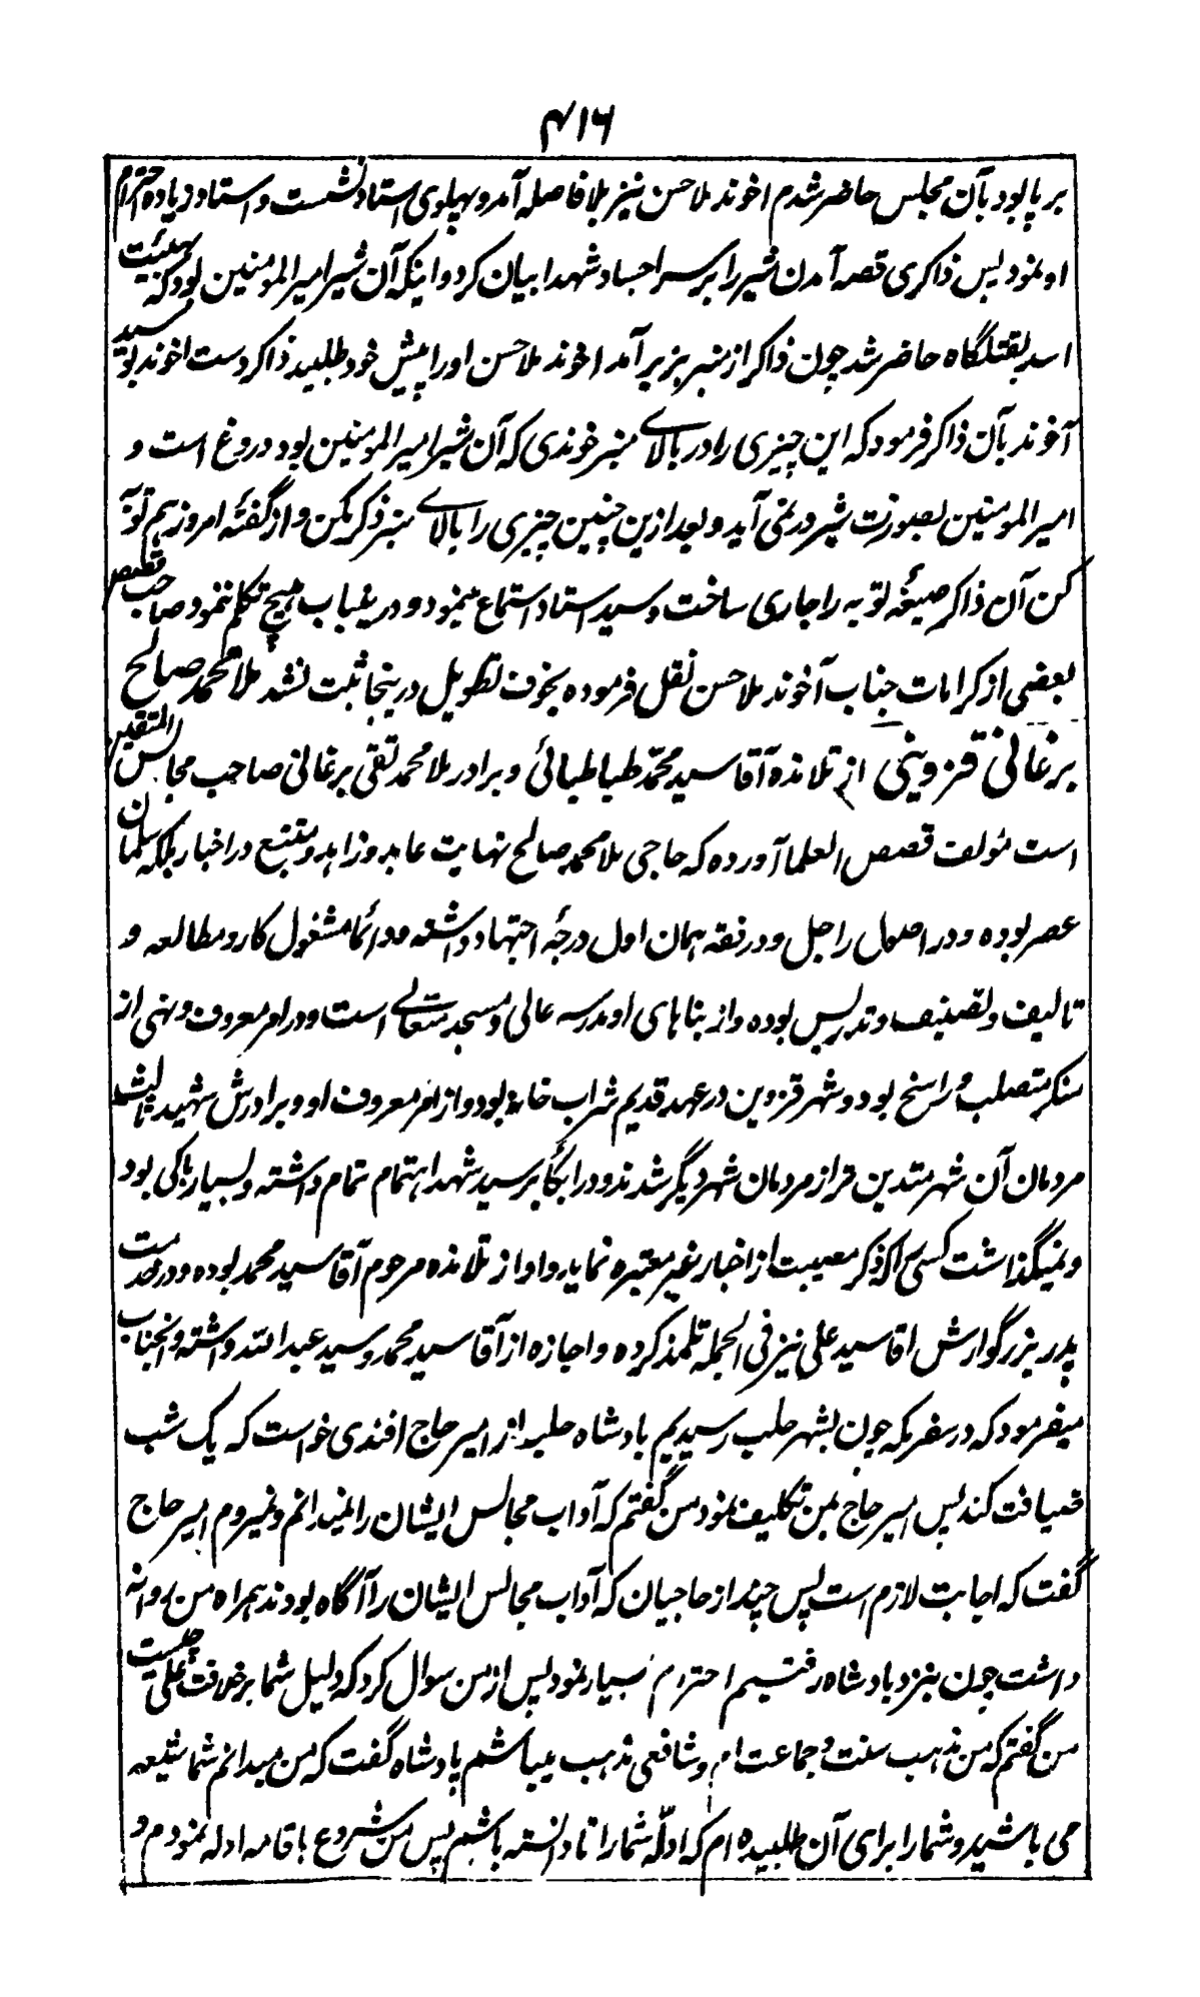 ۴۱۶
بر پا بود بآن مجلس حاضر شدم اخوند ملا حسن نیز بلا فاصله آمد و بپهلوی استاد نشست و استاد زیاده احترام
او نمود پس ذاکری قصه آمدن شیر را بر سر اجساد شهدا بیان کرد و اینکه آن شیر امیر المومنین بود که بهیئیت
اسد بقتلگاه حاضر شد چون ذاکر از منبر بزیر آمد اخوند ملا حسن او را پیش خود طلبید ذاکر دست اخوند بوسید
آخوند بآن ذاکر فرمود که این چیزی را در بالای منبر خوندی که آن شیر امیر المومنین بود دروغ است و
امیر المومنین بصورت شیر در نمی آید و بعد ازین چنین چیزی را بالای منبر ذکر مکن و از گفتهٔ امروز هم توبه
کن آن ذاکر صیغهٔ توبه را جاری ساخت و سید استاد استماع مینمود و درینباب هیچ تکلم ننمود صاحب قصص
بعضی از کرامات جناب آخوند ملا حسن نقل فرموده بخوف تطویل درینجا ثبت نشد ملا محمد صالح
برغانی قزوینی از تلامذه آقا سید محمّد طباطبائی و برادر ملا محمد تقی برغانی صاحب مجالس المتقین
است مؤلف قصص العلما آورده که حاجی ملا محمد صالح نهایت عابد و زاهد و متتبع در اخبار بلکه سلمان
عصر بوده و در اصول راجل و در فقه همان اول درجهٔ اجتهاد داشته و دائما مشغول کار و مطالعه و
تالیف و تصنیف و تدریس بوده و از بناهای او مدرسه عالی و مسجد متعالی است و در امر معروف و نهی از
منکر متصلب و راسخ بود و شهر قزوین در عهد قدیم شراب خانه بود و از امر معروف او و برادرش شهید ثالث
مردمان آن شهر متدین تر از مردمان شهر دیگر شدند و در ابکا بر سید شهدا اهتمام تمام داشته و بسیار باکی بود
و نمیگذاشت کسی را که ذکر مصیبت از اخبار غیر معتبره نماید و او از تلامذه مرحوم آقا سید محمد بوده و در خدمت
پدر بزرگوارش اقا سید علی نیز فی الجمله تلمذ کرده و اجازه از آقا سید محمد و سید عبد الله داشته و آنجناب
میفرمود که در سفر مکه چون بشهر حلب رسیدیم بادشاه حلب از امیر حاج افندی خواست که یک شب
ضیافت کند پس امیر حاج بمن تکلیف نمود من گفتم که آداب مجالس ایشان را نمیدانم و نمیروم امیر حاج
گفت که اجابت لازم است پس چند از حاجیان که آداب مجالس ایشان را آگاه بودند همراه من روانه
داشت چون بنزد بادشاه رفتیم احترام بسیار نمود پس از من سوال کرد که دلیل شما بر خلافت علی چیست
من گفتم که من مذهب سنت و جماعت ام و شافعی مذهب میباشم پادشاه گفت که من میدانم شما شیعه
می باشید و شما را برای آن طلبیده ام که ادلّه شما را تا دانسته باشم پس من شروع باقامه ادله نمودم و